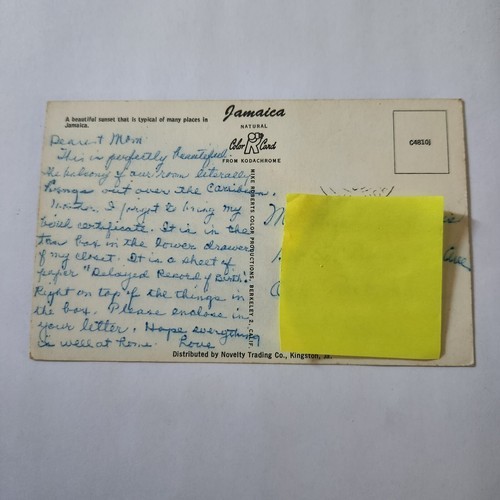 A beautiful sunset that is typical of many places in
Jamaica.
Jamaica
NATURAL
Color Card
FROM KODACHROME
C4810j
Dearest Mom
This is perfectly beautiful.
The balcony of our room literally
hangs out over the Caribbean.
Mother, I forgot to bring my
birth certificate. It is in the
tan box in the lower drawer
of my closet. It is a sheet of
paper "Delayed Record of Birth"
Right on top of the things in
the box. Please enclose in
your letter. Hope everything
is well at home. Love
MIKE ROBERTS COLOR PRODUCTIONS, BERKELEY 2, CALIF.
Ave
Distributed by Novelty Trading Co., Kingston, Ja.